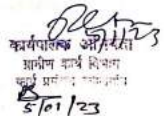 5/1/23
कार्यपालक अभियंता
ग्रामीण कार्य विभाग
कार्य प्रमंडल
5/01/23